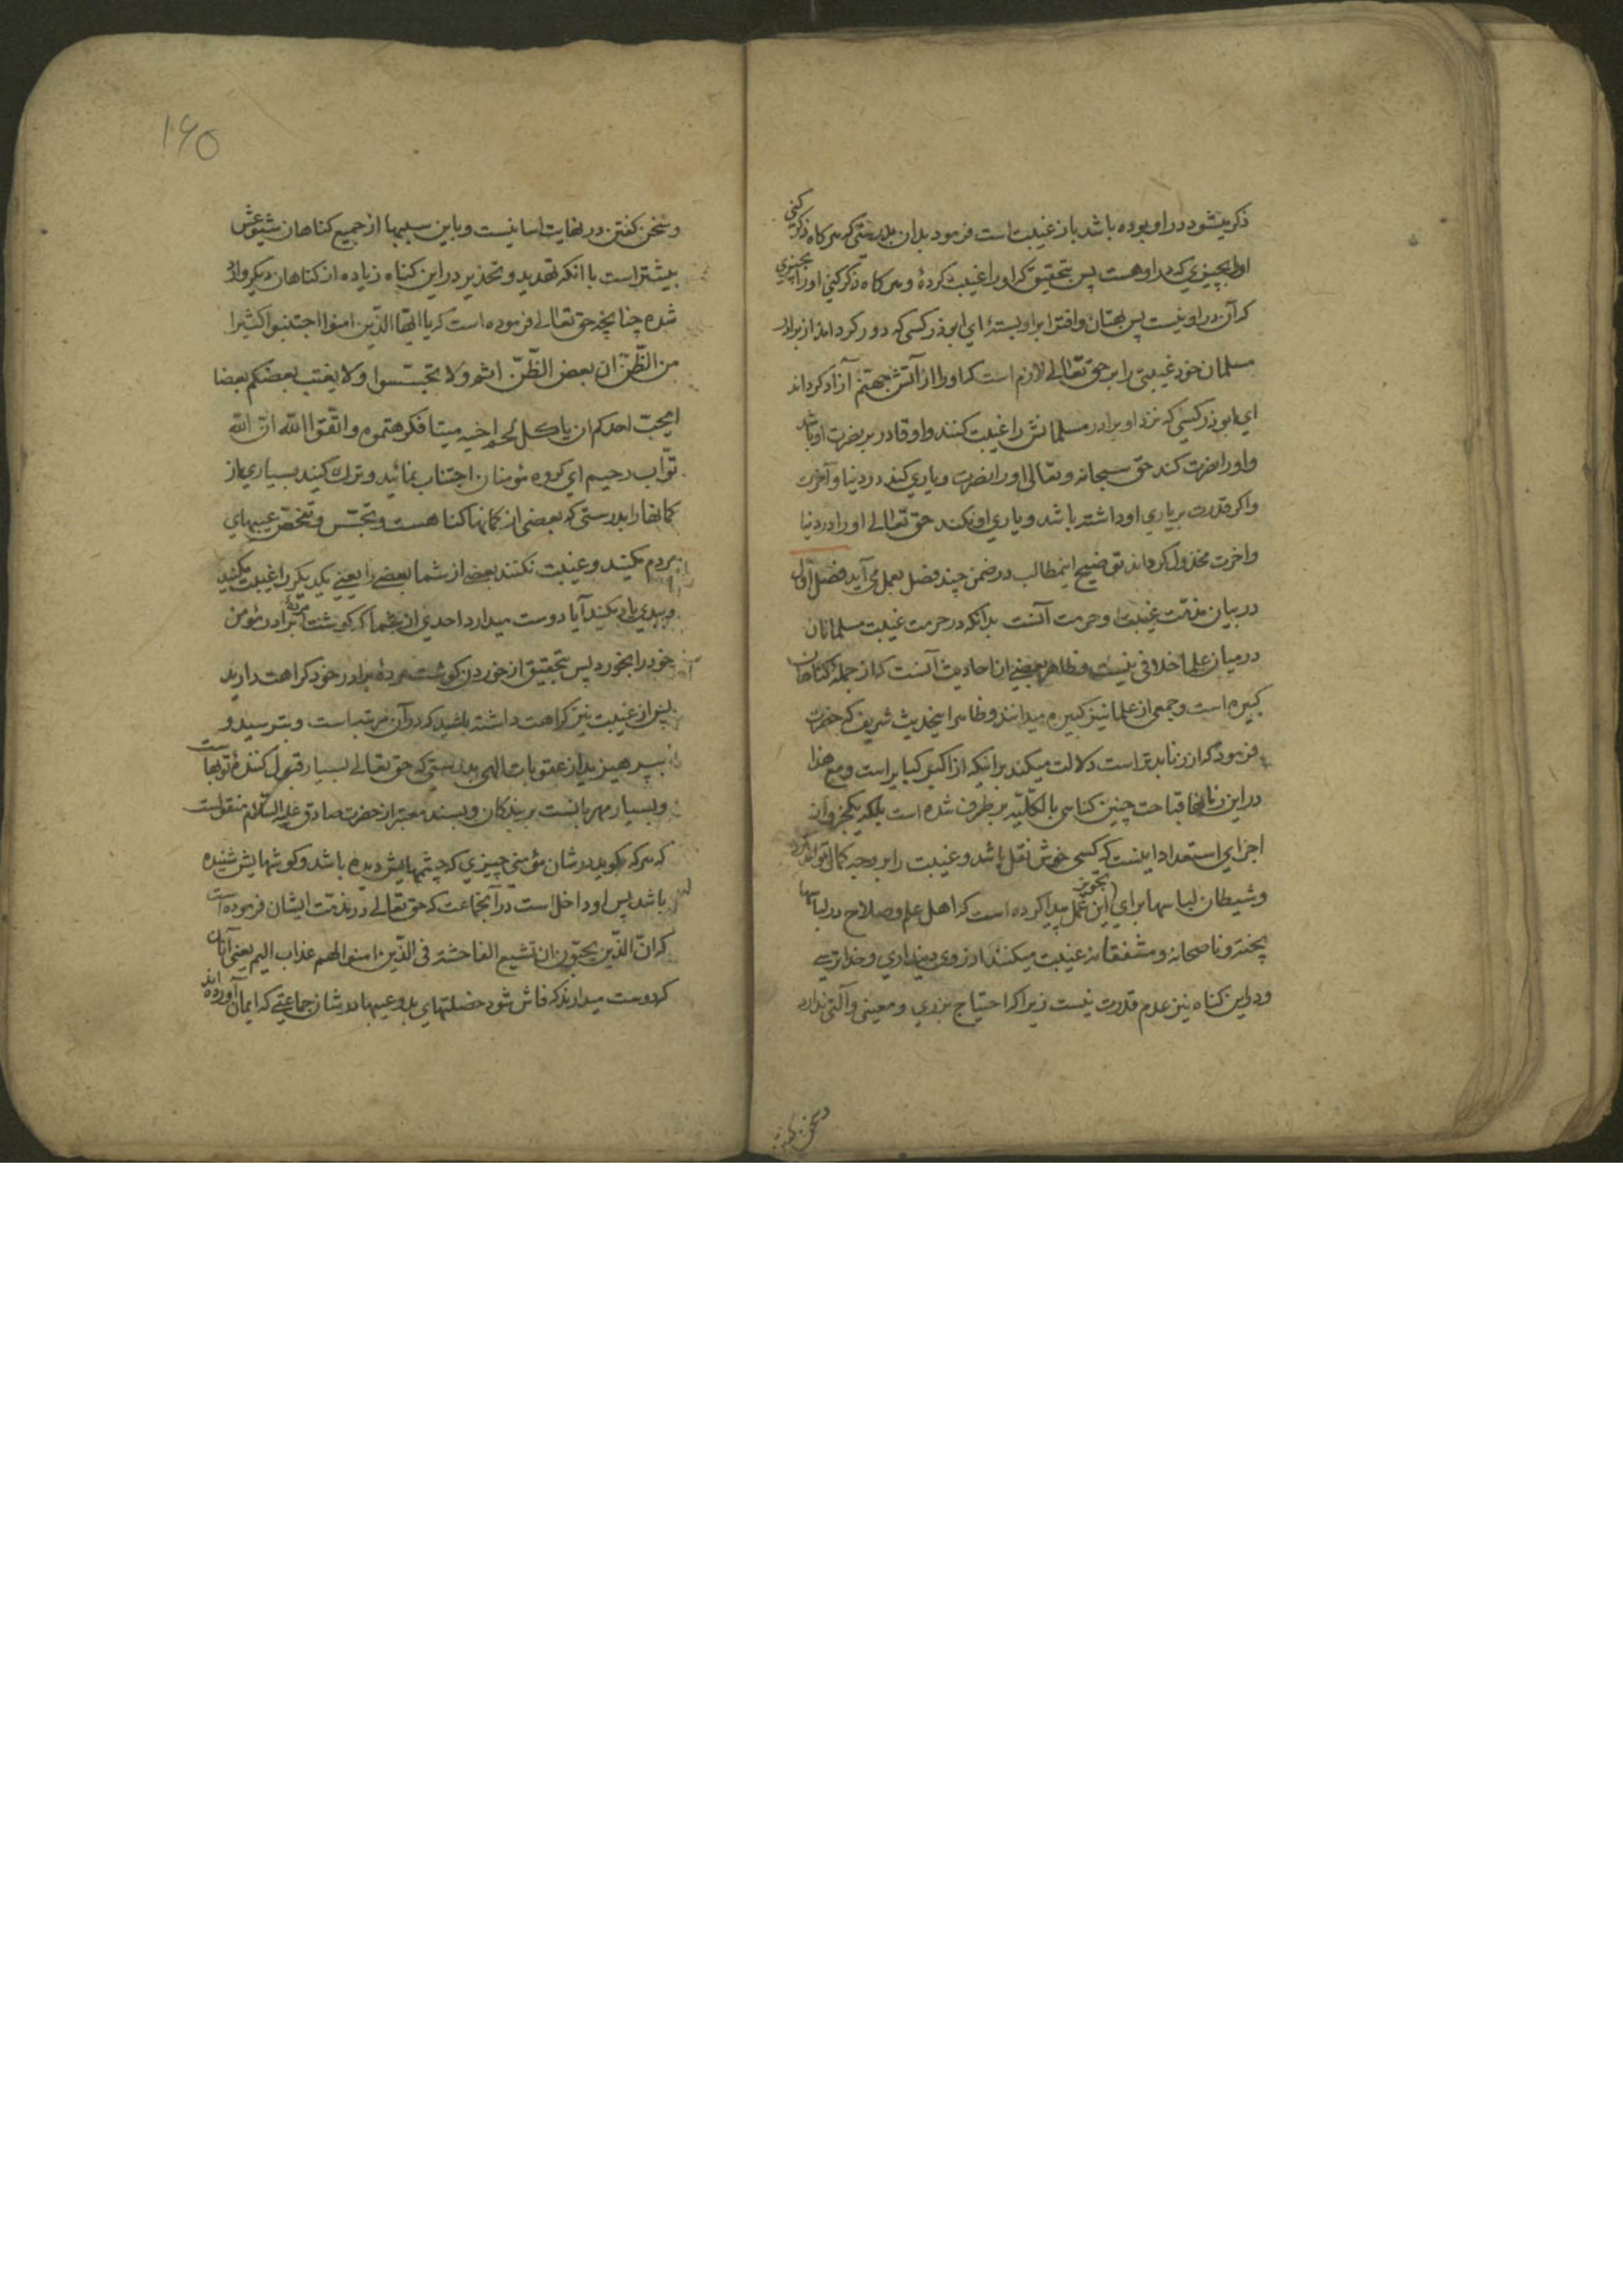 ذکر میشود در او بوده باشد باز غیبت است فرمود بدان بدرستی که هرکاه ذکر کنی
او را بچیزی که در او هست پس بتحقیق که او را غیبت کردهٔ و هرکاه ذکر کنی او را بچیزی
که آن در او نیست پس بهتان و افترا بر او بستهٔ ای ابوذر کسی که دور کرداند از برادر
مسلمان خود غیبتی را بر حق تعالی لازم است که او را از آتش جهنم آزاد کرداند
ای ابوذر کسی که نزد او برادر مسلمانش را غیبت کنند و او قادر بر نصرت او باشد
و او را نصرت کند حق سبحانه و تعالی او را نصرت و یاری کند در دنیا و آخرت
و اکر قدرت بر یاری او داشته باشد و یاری او نکند حق تعالی او را در دنیا
و اخرت مخذول کرداند توضیح اینمطالب در ضمن چند فصل بعمل می آید فصل اول
در بیان مذمّت غیبت و حرمت آنست بدانکه در حرمت غیبت مسلمانان
در میان علما خلافی نیست و ظاهر بعضی از احادیث آنست که از جملهٔ کناهان
کبیره است و جمعی از علما نیز کبیره میدانند و ظاهرا اینحدیث شریف که حضرت
فرمود که از زنا بدتر است دلالت میکند بر اینکه از اکبر کبایر است و مع هذا
در این زمانها قباحت چنین کناهی بالکلّیّه بر طرف شده است بلکه یکجزو از
اجزای استعداد اینست که کسی خوش نقل باشد و غیبت را بر وجه کمال تواند کرد
و شیطان لباسها برای تجویز این عمل پیدا کرده است که اهل علم و صلاح در لباسها
پخته و ناصحانه و مشفقانه غیبت میکنند از روی دینداری و خداترسی
و در این کناه نیز عدم قدرت نیست زیرا که احتیاج بزری و معینی و آلتی ندارد
و سخن کفتن
۱۶۵
و سخن کفتن در نهایت اسانیست و باین سببها از جمیع کناهان شیوعش
بیشتر است با انکه تهدید و تحذیر در این کناه زیاده از کناهان دیکر وارد
شده چنانچه حق تعالی فرموده است که یا ایّها الّذین امنوا اجتنبوا کثیرا
من الظّنّ انّ بعض الظّنّ اثم و لا تجسّسوا و لا یغتب بعضکم بعضا
ایحبّ احدکم ان یاکل لحم اخیه میتا فکرهتموه و اتّقوا اللّه انّ اللّه
توّاب رحیم ای کروه مؤمنان اجتناب نمائید و ترک کنید بسیاری از
کمانها را بدرستی که بعضی از کمانها کناهست و تجسّس و تفحّص عیبهای
مردم مکنید و غیبت نکنند بعضی از شما بعضی را یعنی یکدیکر را غیبت مکنید
و ببدی یاد مکنید آیا دوست میدارد احدی از شما که کوشت مردهٔ برادر مؤمن
خود را بخورد پس بتحقیق از خوردن کوشت مردهٔ برادر خود کراهت دارید
پس از غیبت نیز کراهت داشته باشید که در آن مرتبه است و بترسید و
بپرهیزید از عقوبات الهی بدرستی که حق تعالی بسیار قبول کنندهٔ توبهاست
و بسیار مهربانست بر بندکان و بسند معتبر از حضرت صادق علیه السّلام منقولست
که هرکه بکوید در شان مؤمنی چیزی که چشمهایش دیده باشد و کوشهایش شنیده
باشد پس او داخل است در آنجماعت که حق تعالی در مذمّت ایشان فرموده است
که انّ الّذین یحبّون ان تشیع الفاحشة فی الّذین امنوا لهم عذاب الیم یعنی آنان
که دوست میدارند که فاش شود خصلتهای بد و عیبها در شان جماعتی که ایمان آورده اند